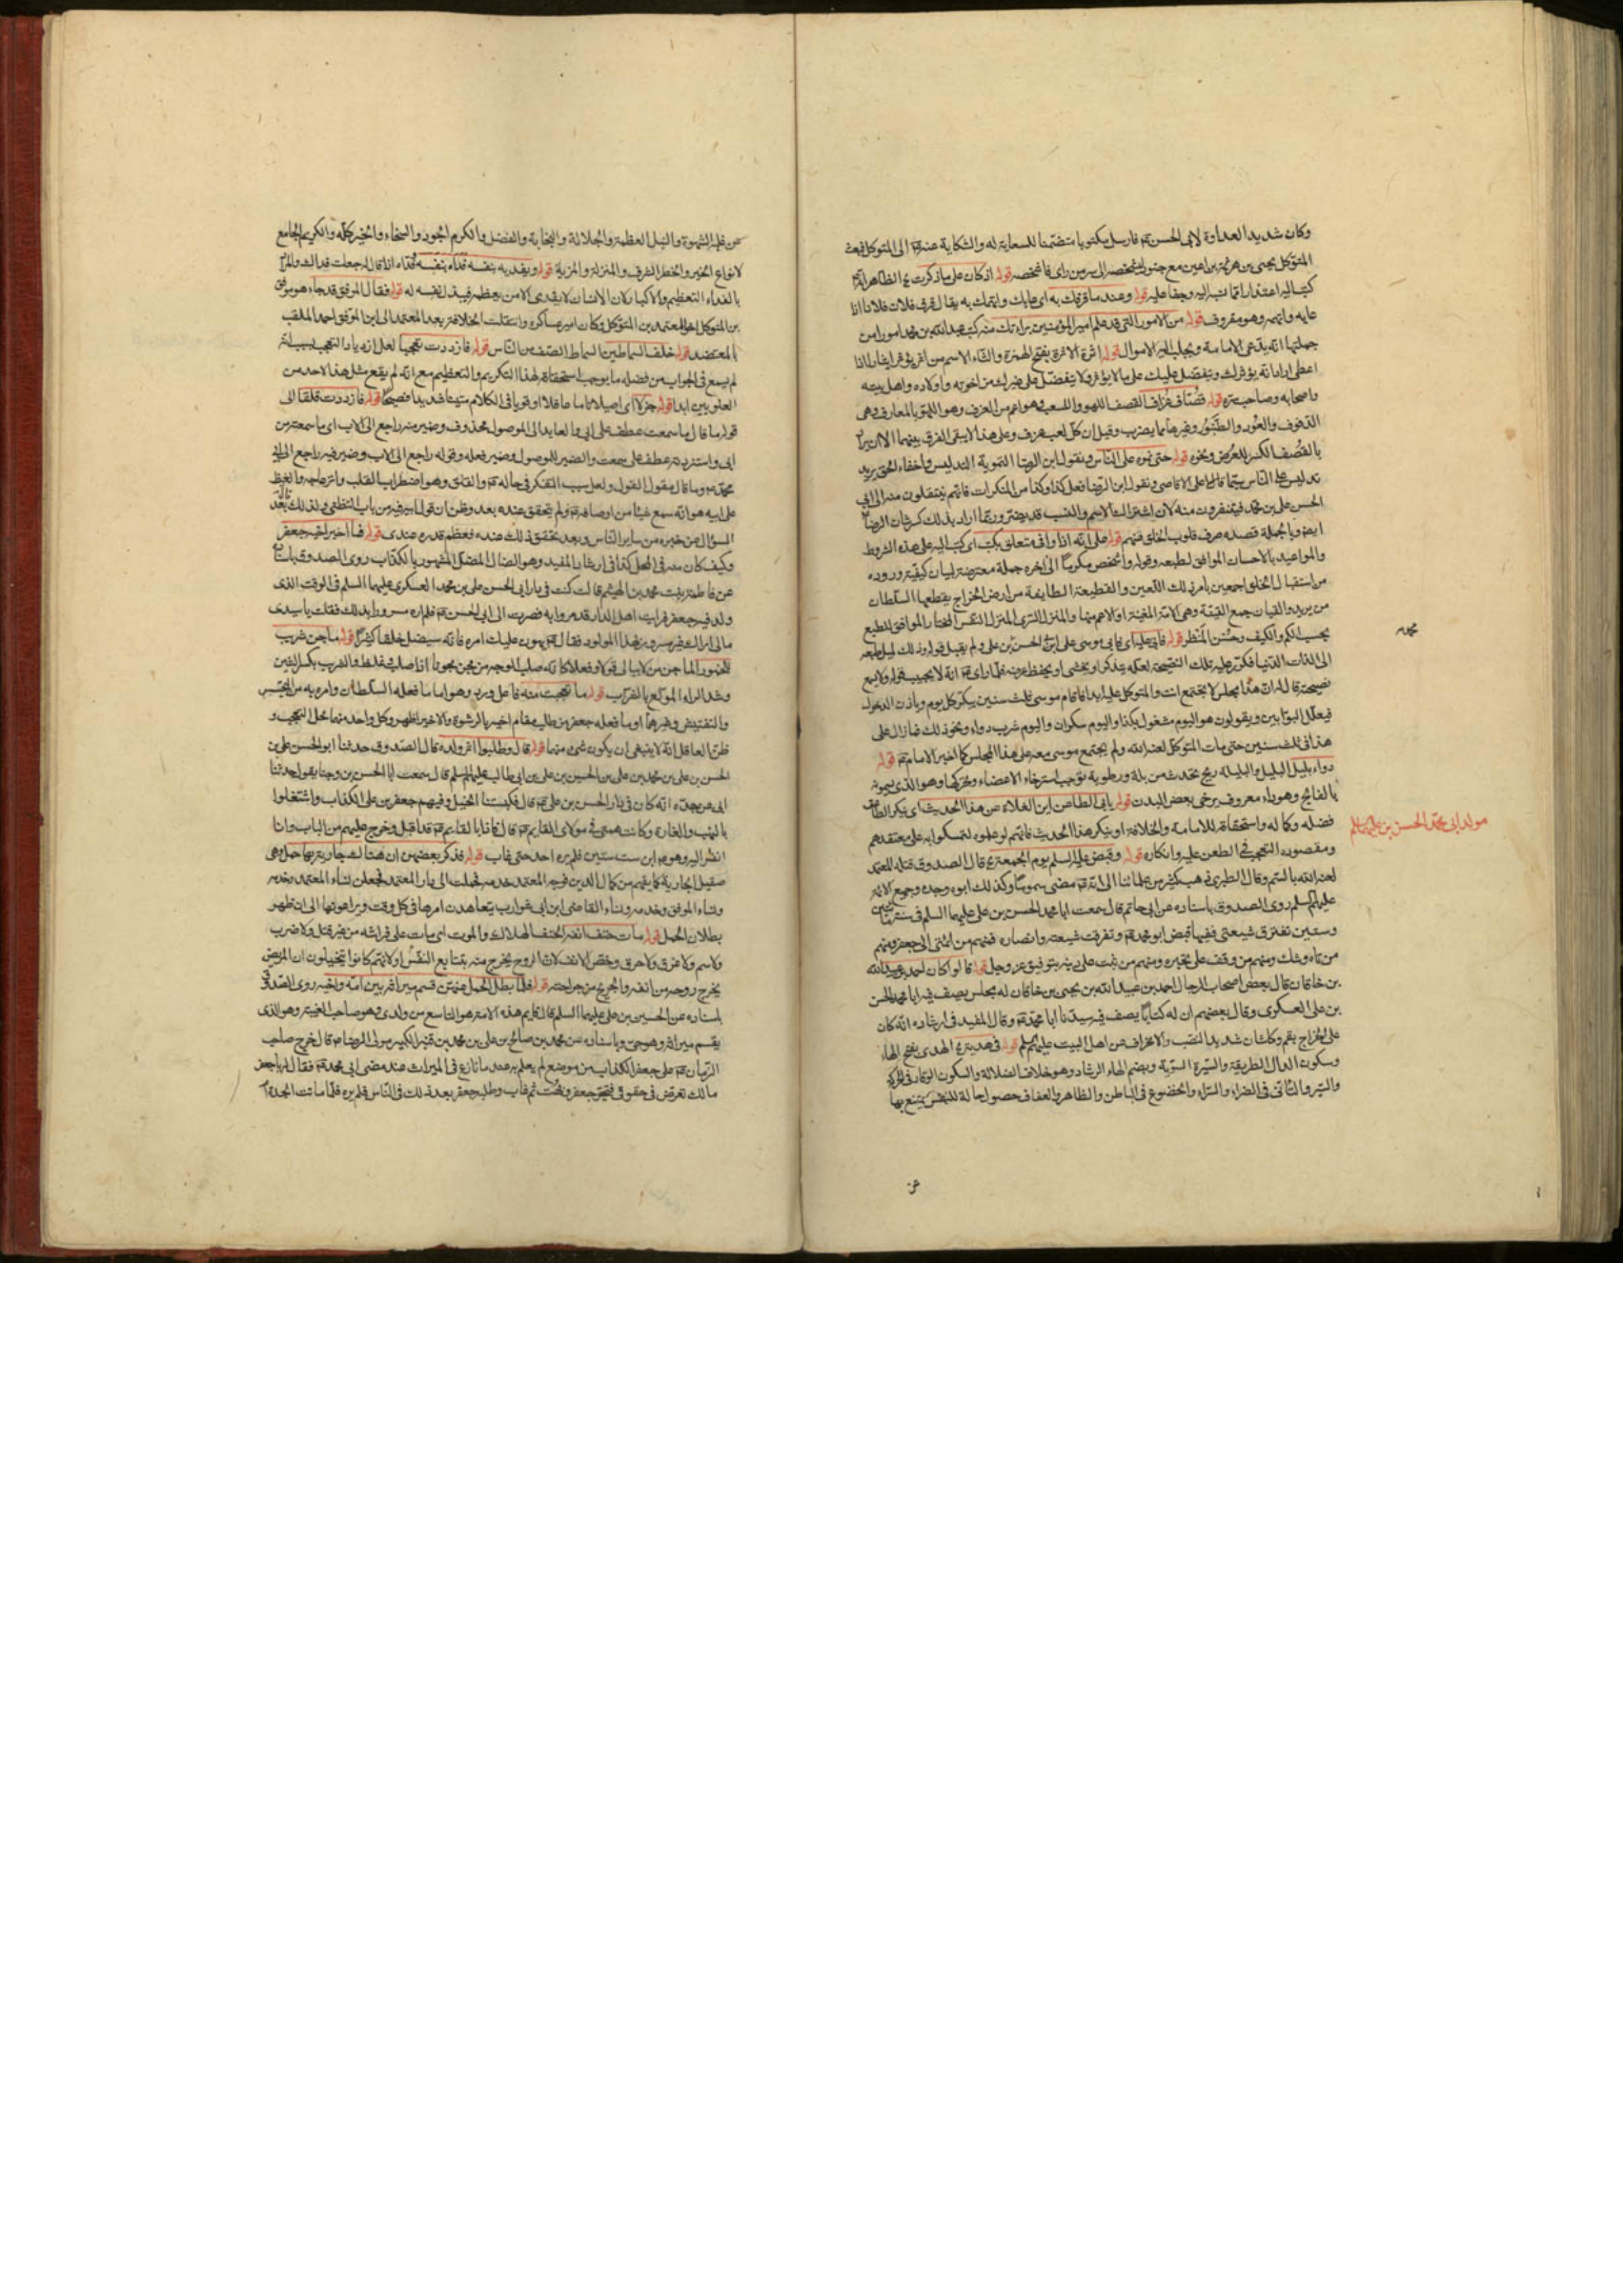 وكان شديد العداوة لابى الحسن ع فارسل مكتوبا متضمنا للسعاية له والشكاية عنه الى المتوكل فبعث
المتوكل يحيى بن هرثمة بن اعين مع جنود ليشخصه الى سر من راى فاشخصه قوله اذ كان على ما ذكرت
كتب اليه اعتذارا مما نسب اليه وجفا عليه قوله وعند ما قرفك به اى عابك واتهمك به يقال قرف فلان فلانا اذا
عابه واتهمه وهو مقروف قوله من الامور التى قد علم امير المؤمنين براءتك منه كتب عبد الله بن محمد امورا من
جملتها انه يدعى الامامة ويجلب اليه الاموال قوله اثرة الاثرة بفتح الهمزة والثاء الاسم من اثر يؤثر ايثارا اذا
اعطى اراد انه يؤثرك ويتفضل عليك على ما لا يؤثر ولا يتفضل على غيرك من اخوته واولاده واهل بيته
واصحابه وصاحب سره قوله قصاف عزاف القصف اللهو واللعب وهو اعم من العزف وهو اللعب بالمعازف وهى
الدفوف والعود والطنبور وغيرها مما يضرب وقيل ان كل لعب عزف وعلى هذا لا يبقى الفرق بينهما الا ان يراد
بالقصف الكسر للعرض ونحوه قوله حتى تموه على الناس وتقول ابن الرضا التمويه التدليس واخفاء الحق يريد
تدليس على الناس سيما على الاقاصى وتقول ابن الرضا فعل كذا وكذا من المنكرات فانهم ينتقلون منه الى ابى
الحسن على بن محمد فيتنفرون منه لان اشتراك الاسم والنسب قد يضر وربما اراد بذلك كسر شان الرضا
ايضو وبالجملة قصده صرف قلوب الخلق عنهم قوله على انه اذا وافى متعلق بكتب اى كتب اليه على هذه الشروط
والمواعيد بالاحسان الموافق لطبعه وقوله واشخص مكرما الى اخره جملة معترضة لبيان كيفية وروده
من استقبال الخلق اجمعين بامر ذلك اللعين والقطيعة الطايفة من ارض الخراج يقطعها السلطان
من يريد والقيان جمع القينة وهى الامة المغنية او الاعم منها والمنزل السرى المنزل النفيس المختار الموافق للطبع
بحسب الكم والكيف وحسن المنظر قوله فابى عليه اى فابى موسى على ابى الحسن بن على ولم يقبل قوله وذلك لميل طبعه
الى لذات الدنيا فكرر عليه تلك النصيحة لعله يتذكر او يخشى او يحفظ عرضه فلما راى ع انه لا يجيب قوله ولا يسمع
نصيحته قال له ان هذا مجلس لا تجتمع انت والمتوكل عليه ابدا فاقام موسى ثلث سنين يبكر كل يوم وياذن الدخول
فيعلل البوابين ويقولون هو اليوم مشغول بكذا واليوم سكران واليوم شرب دواء ونحو ذلك فما زال على
هذا فى ثلث سنين حتى مات المتوكل لعنه الله ولم يجتمع موسى معه على هذا المجلس كما اخبر الامام ع قوله
دواء بليل البليل والبليلة ريح تحدث من بلة ورطوبة توجب استرخاء الاعضاء وتحركها وهو الذى يسمونه
بالفالج وهو داء معروف يرخى بعض البدن قوله يابى الطاعن ابن الغلاة عن هذا الحديث اى ينكر الطاعن
فضله وكماله واستحقاقه للامامة والخلافة او ينكر هذا الحديث فانهم لو علموه لتمسكوا به على معتقدهم
ومقصوده التعجب فى الطعن عليه وانكاره قوله وقبض عليه السلم يوم الجمعة قال الصدوق قتله المعتمد
لعنه الله بالسم وقال الطبرسى ذهب كثير من علمائنا الى انه ع مضى مسموما وكذلك ابوه وجده وجميع الائمة
عليهم السلم روى الصدوق باسناده عن ابى حاتم قال سمعت ابا محمد الحسن بن على عليهما السلم فى سنة مأتين
وستين تفترق شيعتى ففيها قبض ابو محمد ع وتفرقت شيعته وانصاره فمنهم من انتمى الى جعفر ومنهم
من تاه وشك ومنهم من وقف على تحيره ومنهم من ثبت على دينه بتوفيق عز وجل قوله قالوا كان احمد بن عبيد الله
بن خاقان قال بعض اصحاب الرجال احمد بن عبيد الله بن يحيى بن خاقان له مجلس يصف فيه ابا محمد الحسن
بن على العسكرى وقال بعضهم ان له كتابا يصف فيه سيدنا ابا محمد ع وقال المفيد فى ارشاده انه كان
على الخراج بقم وكاشان شديد النصب والانحراف عن اهل البيت عليهم السلم قوله فى هديه الهدى بفتح الهاء
وسكون الدال الطريقة والسيرة السوية وبضم الهاء الرشاد وهو خلاف الضلالة والسكون الوقار فى الحركة
والسير والتانى فى الضراء والسراء والخضوع فى الباطن والظاهر والعفاف حصول حالة للنفس يمتنع بها
عن
محمد
مولد ابى محمد الحسن بن على عليهما السلم
عن غلبة الشهوة والنبل العظمة والجلالة والنجابة والفضل والكرم الجود والسخاء والخير كله والكريم الجامع
لانواع الخير والخطر الشرف والمنزلة والمزية قوله ويفديه بنفسه فداه بنفسه فداء اذا قال له جعلت فداك والمراد
بالفداء التعظيم والاكبار لان الانسان لا يفدى الا من يعظمه فيبذل نفسه له قوله فقال الموفق قد جاء هو موفق
بن المتوكل اخو المعتمد بن المتوكل وكان امير عساكره وانتقلت الخلافة بعد المعتمد الى ابن الموفق احمد الملقب
بالمعتضد قوله خلف السماطين السماط الصف من الناس قوله فازددت تعجبا لعل ازدياد التعجب بسبب انه
لم يسمع فى الجواب من فضله ما يوجب استحقاقه لهذا التكريم والتعظيم مع انه لم يقع مثل هذا لاحد من
العلويين ابدا قوله جزلا اى اصيلا تاما عاقلا او قويا فى الكلام متينا شديدا فصيحا قوله فازددت قلقا الى
قوله ما قال ما سمعت عطف على ابى والعايد الى الموصول محذوف وضمير منه راجع الى الاب اى ما سمعته من
ابى واستزدته عطف على سمعت والضمير للموصول وضمير فعله وقوله راجع الى الاب وضمير فيه راجع الى ابى
محمد ع وما قال مقول القول ولعل سبب التفكر فى حاله ع والقلق وهو اضطراب القلب وانزعاجه والغيظ
على ابيه هو انه سمع شيئا من اوصافه ع ولم يتحقق عنده بعد وظن ان قول ابيه فيه من باب التظنى ولذلك بعد
السؤال عن خبره من ساير الناس وبعد تحقق ذلك عنده فعظم قدره عندى قوله فما اخبر اخيه جعفر
وكيف كان منه فى المحل كذا فى ارشاد المفيد وهو الضال المضل المشهور بالكذاب روى الصدوق باسناده
عن فاطمة بنت محمد بن الهيثم قالت كنت فى دار ابى الحسن على بن محمد العسكرى عليهما السلم فى الوقت الذى
ولد فيه جعفر فرايت اهل الدار قد سروا به فصرت الى ابى الحسن ع فلم اره مسرورا بذلك فقلت يا سيدى
مالى اراك غير مسرور بهذا المولود فقال ع يهون عليك امره فانه سيضل خلقا كثيرا قوله ماجن شريب
للخمور الماجن من لا يبالى قولا وفعلا كانه صلب الوجه من مجن مجونا اذا صلب وغلظ والشريب بكسر الشين
وشد الراء المولع بالشراب قوله ما تعجبت منه فاعل ورد وهو اما ما فعله السلطان وامره به من التجسس
والتفتيش وغيرهما او ما فعله جعفر من طلب مقام اخيه بالرشوة والاخير اظهر وكل واحد منهما محل التعجب و
ظن العاقل انه لا ينبغى ان يكون شىء منهما قوله قال وطلبوا اثر ولده قال الصدوق حدثنا ابو الحسن على بن
الحسن بن على بن محمد بن على بن الحسين بن على بن ابى طالب عليهم السلم قال سمعت ابا الحسن بن وجنا يقول حدثنا
ابى عن جده انه كان فى دار الحسن بن على ع قال فكبستنا الخيل وفيهم جعفر بن على الكذاب واشتغلوا
بالنهب والغارة وكانت همتى فى مولاى القايم ع قال فاذا بالقايم ع قد اقبل وخرج عليهم من الباب وانا
انظر اليه وهو ع ابن ست سنين فلم يره احد حتى غاب قوله فذكر بعضهن ان هناك جارية بها حمل وهى
صقيل الجارية كما يفهم من كمال الدين فوجه المعتمد خدمه فحملت الى دار المعتمد فجعلن نساء المعتمد وخدمه
ونساء الموفق وخدمه ونساء القاضى ابن ابى شوارب يتعاهدن امرها فى كل وقت ويراعونها الى ان ظهر
بطلان الحمل قوله مات حتف انفه الحتف الهلاك والموت اى مات على فراشه من غير قتل ولا ضرب
ولا سم ولا غرق ولا حرق وخص الانف لان الروح يخرج منه بتتابع النفس او لانهم كانوا يتخيلون ان المريض
يخرج روحه من انفه والجريح من جراحته قوله فلما بطل الحمل عنهن قسم ميراثه بين امه واخيه روى الصدوق
باسناده عن الحسين بن على عليهما السلم قال قايم هذه الامة هو التاسع من ولدى وهو صاحب الغيبة وهو الذى
يقسم ميراثه وهو حى وباسناده عن محمد بن صالح بن على بن محمد بن قنبر الكبير مولى الرضا ع قال خرج صاحب
الزمان ع على جعفر الكذاب من موضع لم يعلم به عند ما نازع فى الميراث عند مضى ابى محمد ع فقال له يا جعفر
مالك تعرض فى حقوقى فتحير جعفر وبهت ثم غاب وطلبه جعفر بعد ذلك فى الناس فلم يره فلما ماتت الجدة